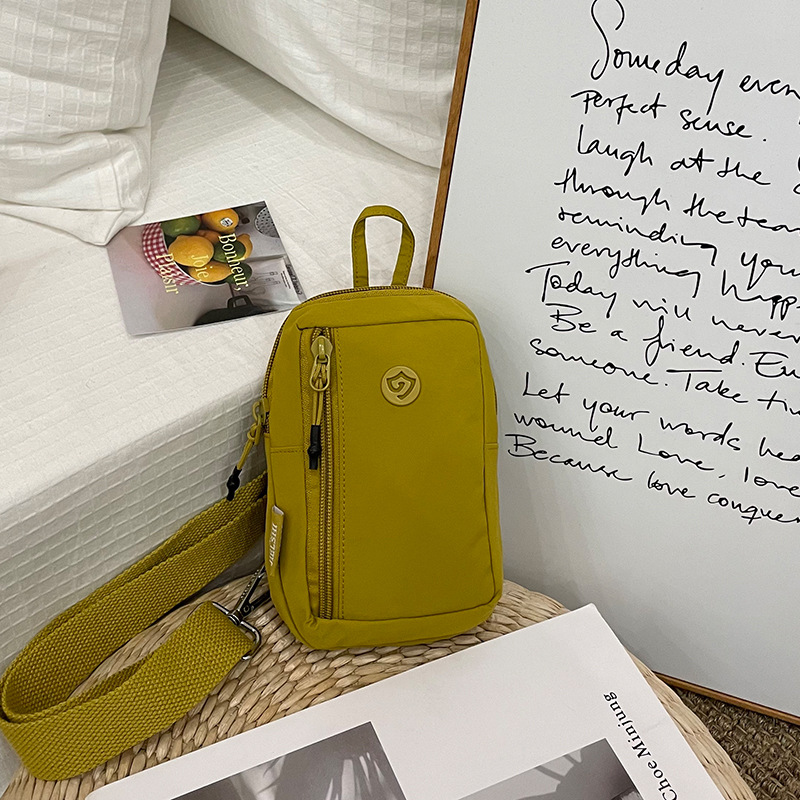 Someday even
Perfect sense.
Laugh at the
through the tear
reminding you
everything happ
Today will never
Be a friend. En
someone. Take tim
Let your words hea
wound Love, love
Because love conquer
Bonheur,
Joie
Plaisir
Choe Minjung